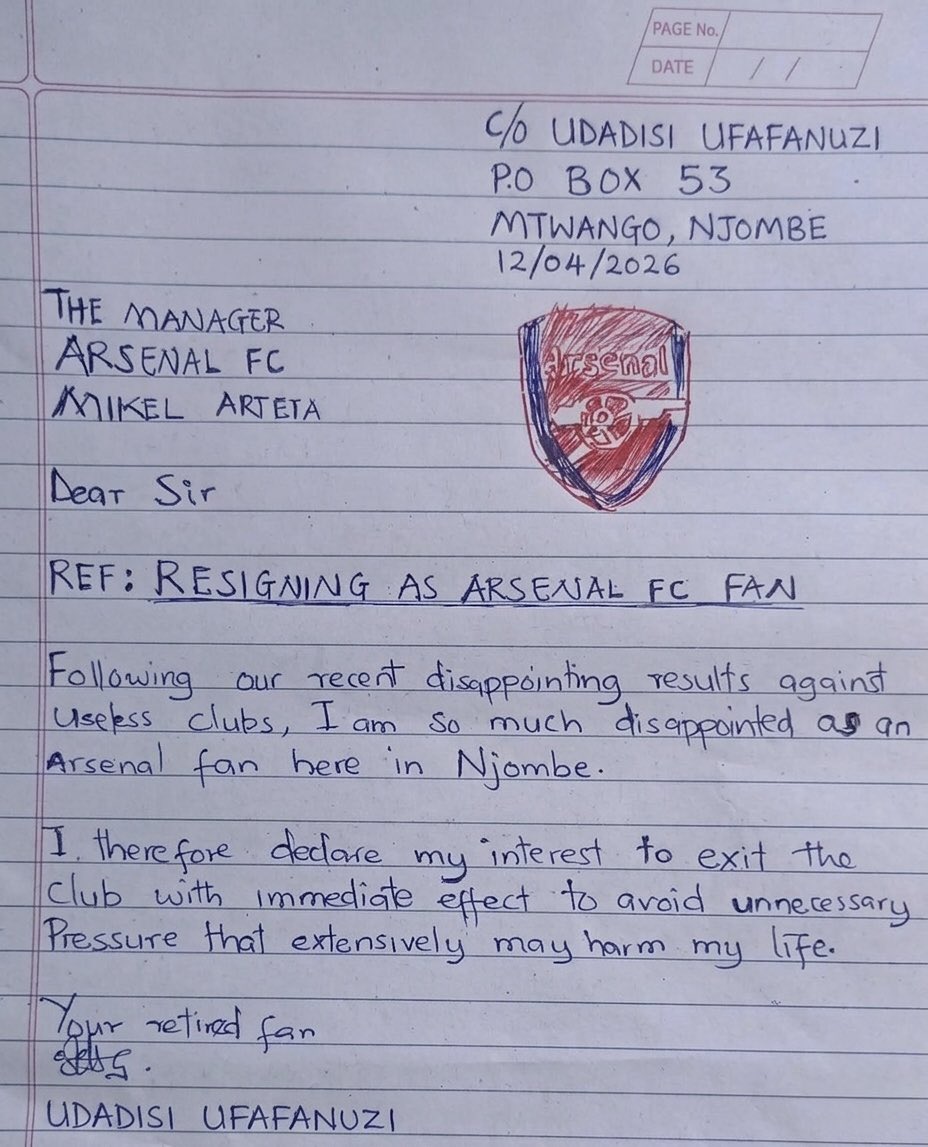 PAGE No.
DATE / /
C/O UDADISI UFAFANUZI
P.O BOX 53
MTWANGO, NJOMBE
12/04/2026
THE MANAGER
ARSENAL FC
MIKEL ARTETA
Arsenal
Dear Sir
REF: RESIGNING AS ARSENAL FC FAN
Following our recent disappointing results against
useless clubs, I am so much disappointed as an
Arsenal fan here in Njombe.
I therefore declare my interest to exit the
club with immediate effect to avoid unnecessary
Pressure that extensively may harm my life.
Your retired fan
UDADISI UFAFANUZI